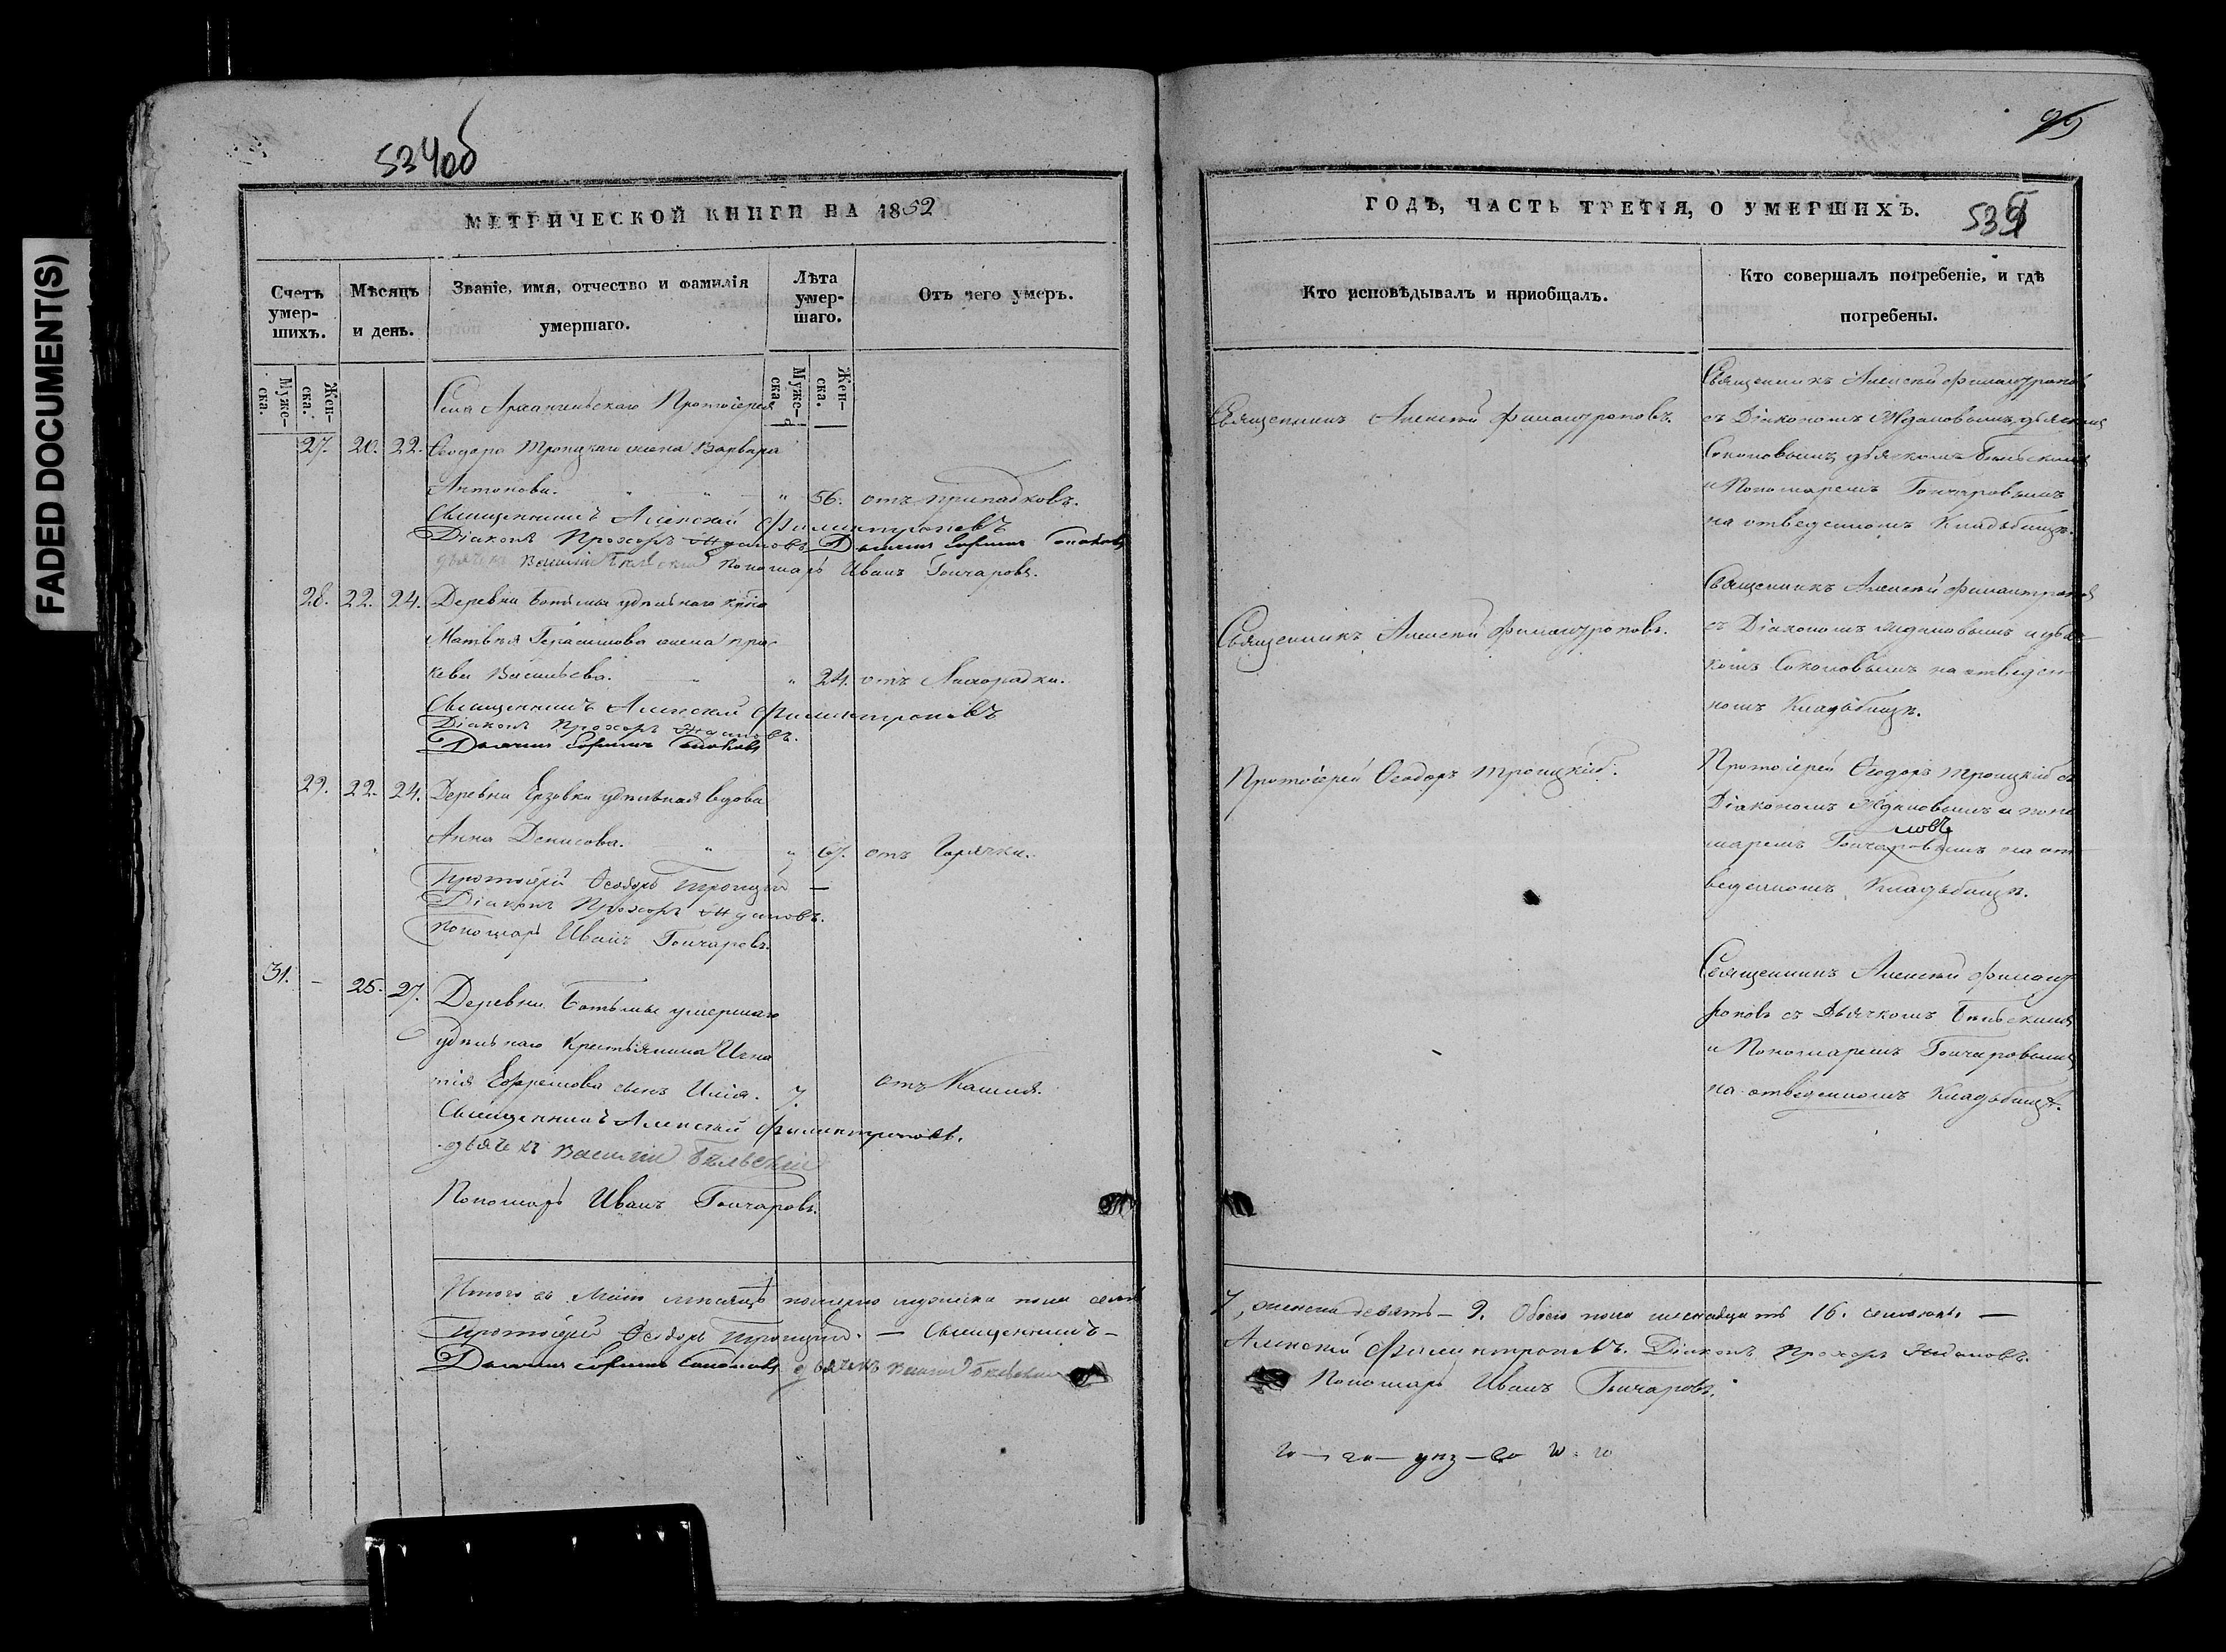 FADED DOCUMENT(S)
534об
МЕТРИЧЕСКОЙ КНИГИ НА 1852
Счетъ умер-шихъ.
Мѣсяцъ и день.
Званіе, имя, отчество и фамилія умершаго.
Лѣта умер-шаго.
Отъ чего умеръ.
Муже-ска.
Жен-ска.
Муже-ска.
Жен-ска.
Села Архангельскаго Протоіерея
27. 20. 22. Ѳеодора Троицкаго жена Варвара
Антонова. " 56. отъ припадковъ.
Священникъ Алексѣй Филантроповъ
Діаконъ Прохоръ Ждановъ Дьячекъ Соколовъ
дьячекъ Василій Бѣльскій Пономарь Иванъ Гончаровъ.
28. 22. 24. Деревни удѣльнаго
Матвѣя Герасимова жена Прас-
кева Васильева. " 24. отъ Лихорадки.
Священникъ Алексѣй Филантроповъ
Діаконъ Прохоръ Ждановъ.
Дьячекъ Соколовъ
29. 22. 24. Деревни Ерзовки удѣльная вдова
Анна Денисова. " 67. отъ Горячки.
Протоіерей Ѳеодоръ Троицкій —
Діаконъ Прохоръ Ждановъ.
Пономарь Иванъ Гончаровъ.
31. – 25. 27. Деревни умершаго
удѣльнаго Крестьянина Игна
тія Ефремова сынъ Илія. 7. отъ Кашля.
Священникъ Алексѣй Филантроповъ.
дьячекъ Василій Бѣльскій
Пономарь Иванъ Гончаровъ.
Итого въ Маіѣ мѣсяцѣ померло мужеска пола семь
Протоіерей Ѳеодоръ Троицкій. — Священникъ –
Дьячекъ Соколовъ дьячекъ Василій Бѣльскій
95
ГОДЪ, ЧАСТЬ ТРЕТІЯ, О УМЕРШИХЪ.
535
Кто исповѣдывалъ и приобщалъ.
Кто совершалъ погребеніе, и гдѣ погребены.
Священникъ Алексѣй Филантроповъ.
Священникъ Алексѣй Филантроповъ
съ Діакономъ Ждановымъ, дьячкомъ
Соколовымъ, дьячкомъ Бѣльскимъ
и Пономаремъ Гончаровымъ
на отведенномъ Кладбищѣ.
Священникъ Алексѣй Филантроповъ.
Священникъ Алексѣй Филантроповъ
съ Діакономъ Ждановымъ и дьяч-
комъ Соколовымъ на отведен-
номъ Кладбищѣ.
Протоіерей Ѳеодоръ Троицкій.
Протоіерей Ѳеодоръ Троицкій съ
Діакономъ Ждановымъ и поно
маремъ Гончаровымъ на от-
веденномъ Кладбищѣ.
Священникъ Алексѣй Филант
роповъ съ Дьячкомъ Бѣльскимъ
и Пономаремъ Гончаровымъ
на отведенномъ Кладбищѣ.
7, женска девять – 9. Обоего пола шестнадцать 16. человѣкъ —
Алексѣй Филантроповъ. Діаконъ Прохоръ Ждановъ.
Пономарь Иванъ Гончаровъ.